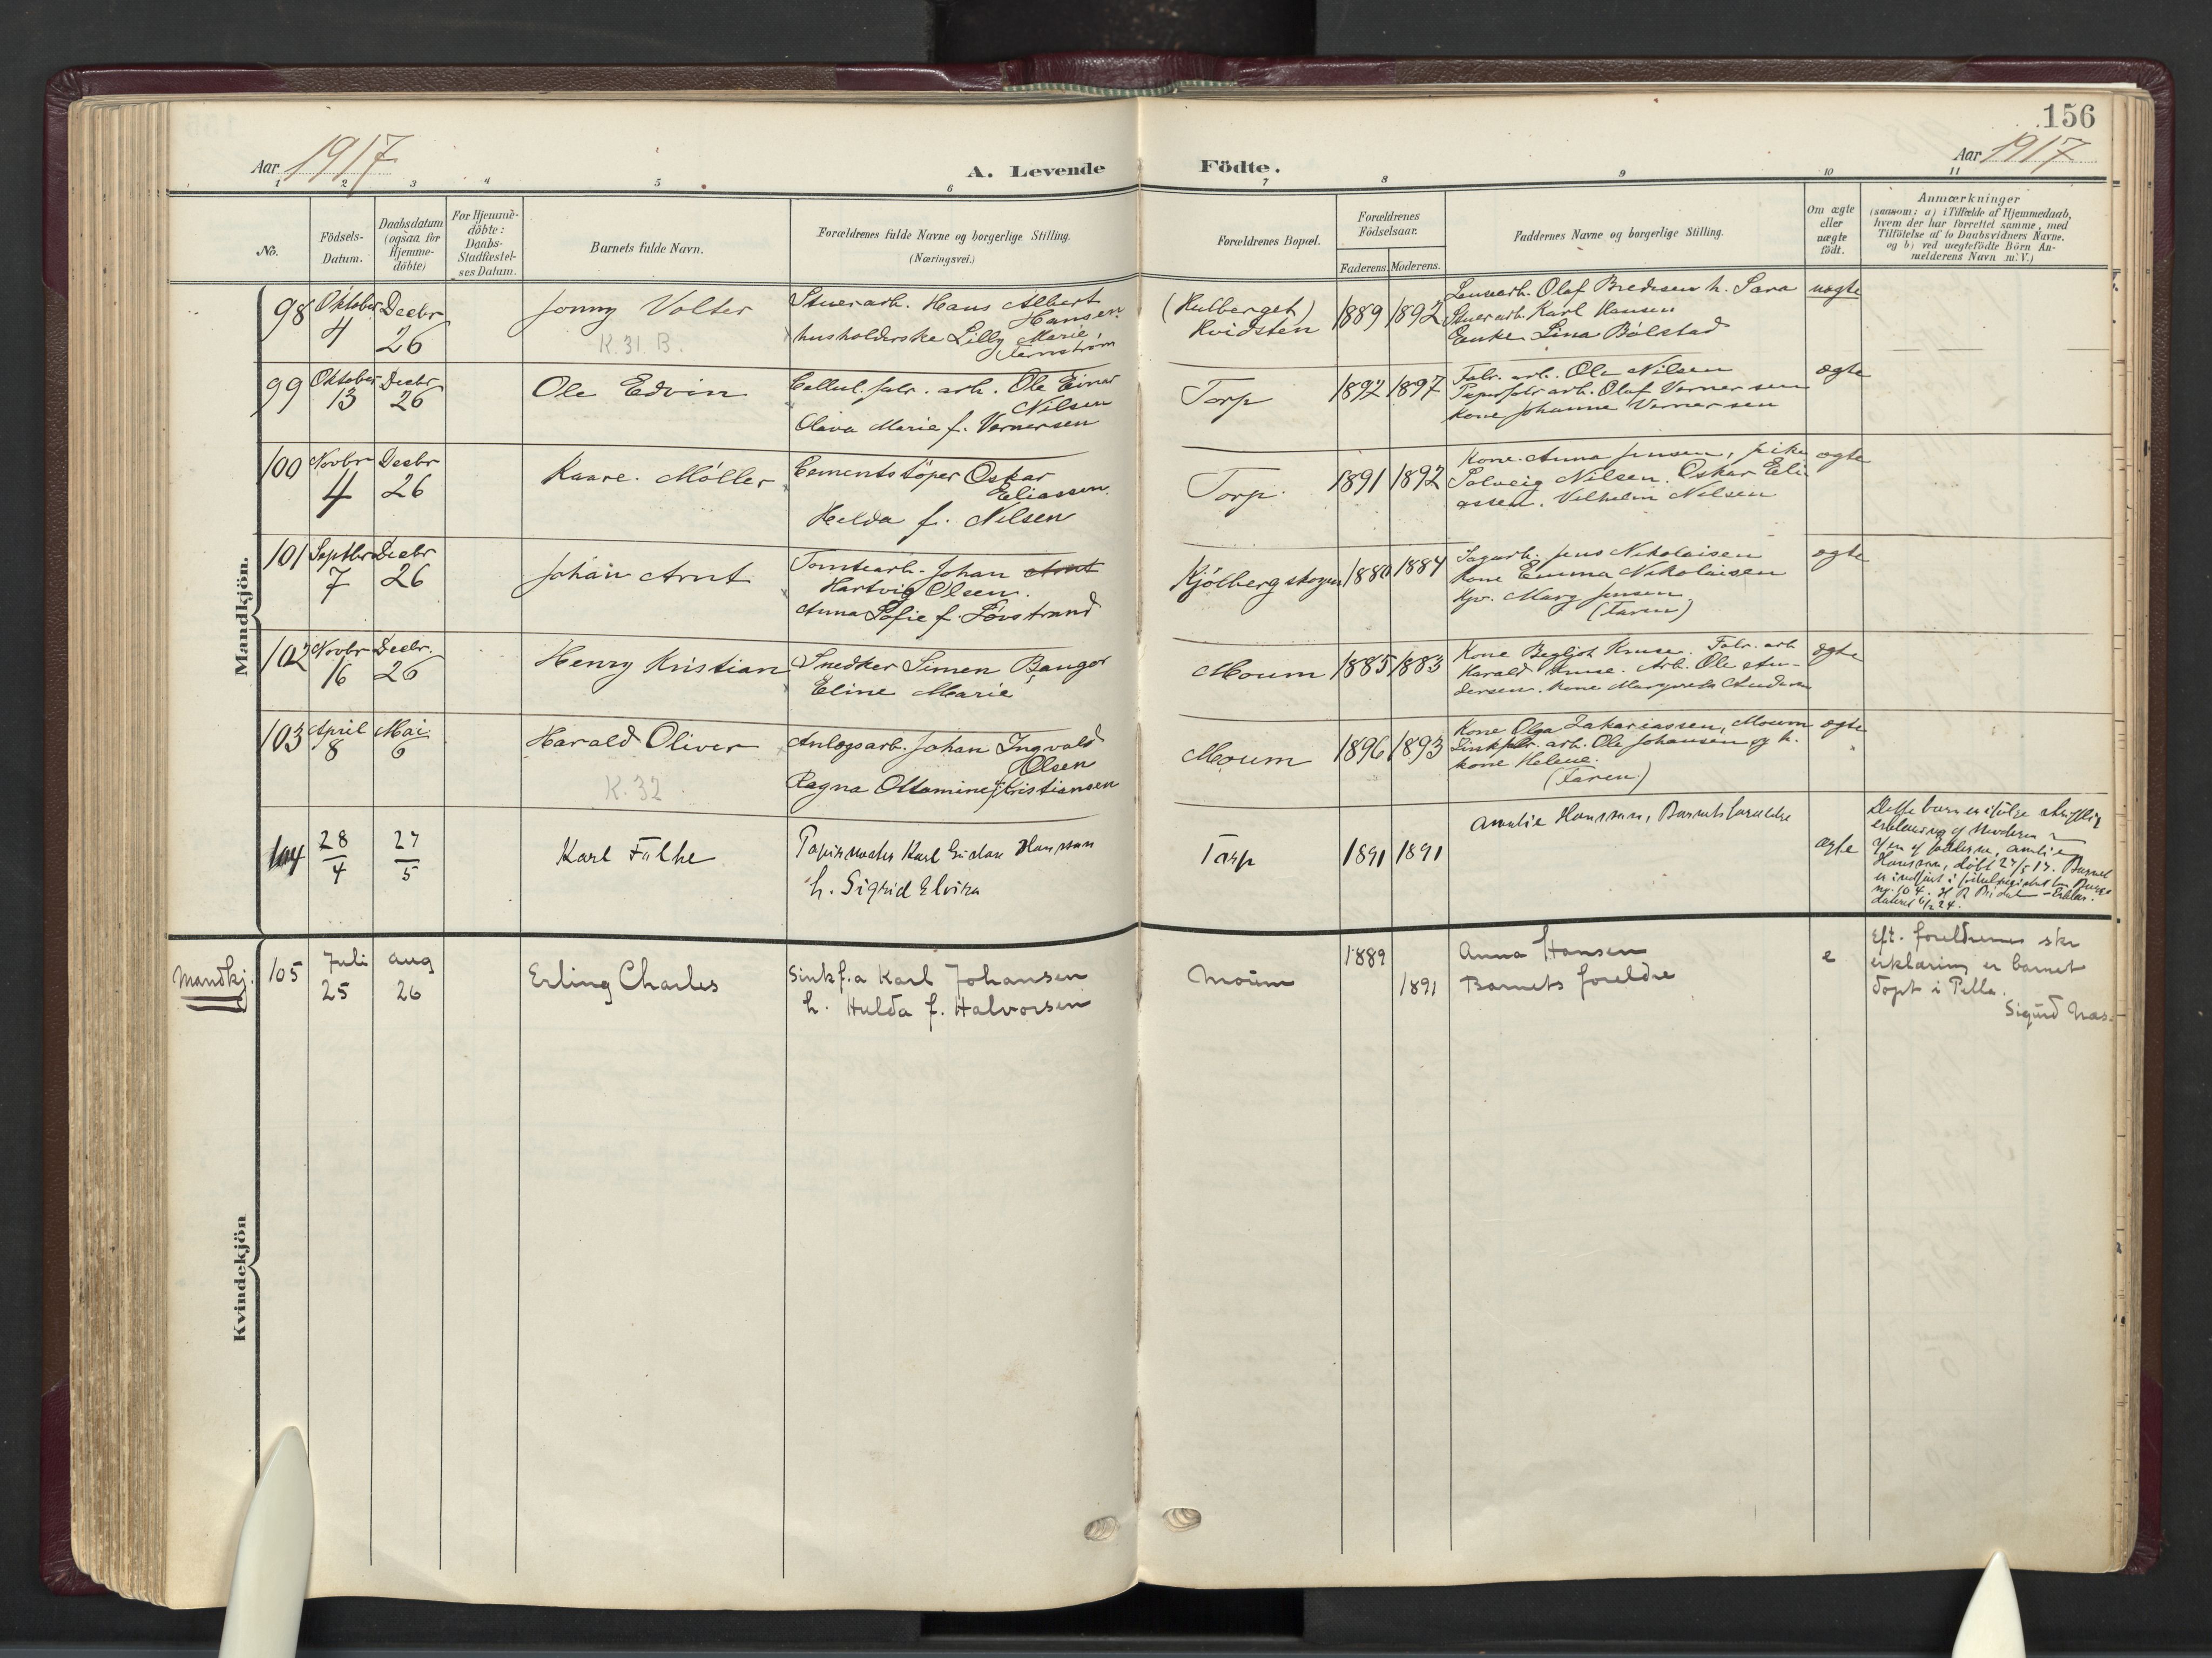 156
Aar 1917
A. Levende Födte.
Aar 1917
1 2 3 4 5 6 7 8 9 10 11
No.
Födsels-
Datum.
Daabsdatum
(ogsaa for
Hjemme-
döbte)
For Hjemme-
döbte:
Daabs-
Stadfæstel-
ses Datum.
Barnets fulde Navn.
Forældrenes fulde Navne og borgerlige Stilling.
(Næringsvei.)
Forældrenes Bopæl.
Forældrenes
Födselsaar.
Faderens. Moderens.
Faddernes Navne og borgerlige Stilling.
Om ægte
eller
uægte
födt.
Anmærkninger
(saasom: a) i Tilfælde af Hjemmedaab,
hvem der har forrettet samme, med
Tilföielse af to Daabsvidners Navne.
og b) ved uægtefödte Börn An-
melderens Navn m. V.)
Mandkjön.
98
Oktober
4
Decbr
26
Jonny Volter
K. 31 B.
Stuerarb. Hans Albert
Hansen
husholderske Lilly Marie,
(Hulberget)
Kvidsten
1889
1892
Olaf Bredesen h. Sara
Stuerarb. Karl Hansen
Enke Lina Bölstad
uægte
99
Oktober
13
Decbr
26
Ole Edvin
Cellul. fabr. arb. Ole Einar
Nilsen
Oliva Marie f. Vernersen
Torp
1892
1897
Fabr. arb. Ole Nilsen
Papirfabr arb. Olaf Vernersen
Kone Johanne Vernersen
ægte
100
Novbr
4
Decbr
26
Kaare Möller
Cementstöper Oskar
Eliassen.
Helda f. Nilsen
Torp.
1891
1892
Kone Anna Jensen, pike
Solveig Nilsen. Oskar Eli-
assen. Vilhelm Nilsen
ægte
101
Septbr
7
Decbr
26
Johan Arnt
Tomtearb. Johan Arnt
Hartvig Olsen.
Anna Sofie f. Lövstrand
Kjölbergskogen
1880
1884
Sagarb. Jens Nikolaisen
Kone Emma Nikolaisen
Mary Jensen
(Faren)
ægte
102
Novbr
16
Decbr.
26
Henry Kristian
Snedker Simen Bangor
Eline Marie
Moum
1885
1883
Kone Bergljot Kruse. Fabr. arb
Harald Kruse. Arb. Ole An-
dersen. Kone Margrete Andersen
ægte
103
April
8
Mai
6
Harald Oliver
K. 32
Anlægsarb. Johan Ingvald
Olsen
Ragna Ottomine f. Kristiansen
Moum
1896
1893
Kone Olga Zakariassen, Moum
Zinkfabr. arb. Ole Johansen og h.
kone Helene.
(Faren)
ægte
104
28
4
27
5
Karl Fülhe
Karl Gustav Hansson
h. Sigrid Elvira
Torp
1891
1891
Amalie Hansson, Barnets forældre
ægte
Dette barn er ifölge skriftlig
erklæring af Moderen
og en af fadderne, Amalie
Hansson, döbt 27/5 17. Barnet
er indfört i
no. 104.
Kvindekjön
Mandkj.
105
Juli
25
Aug
26
Erling Charles
Sinkf.a Karl Johansen
h. Hulda f. Halvorsen
Moum
1889
1891
Anna Hansen
Barnets foreldre
e
Eft. foreldrenes skr
erklæring er barnet
döpt i Pella.
Sigurd Næs.